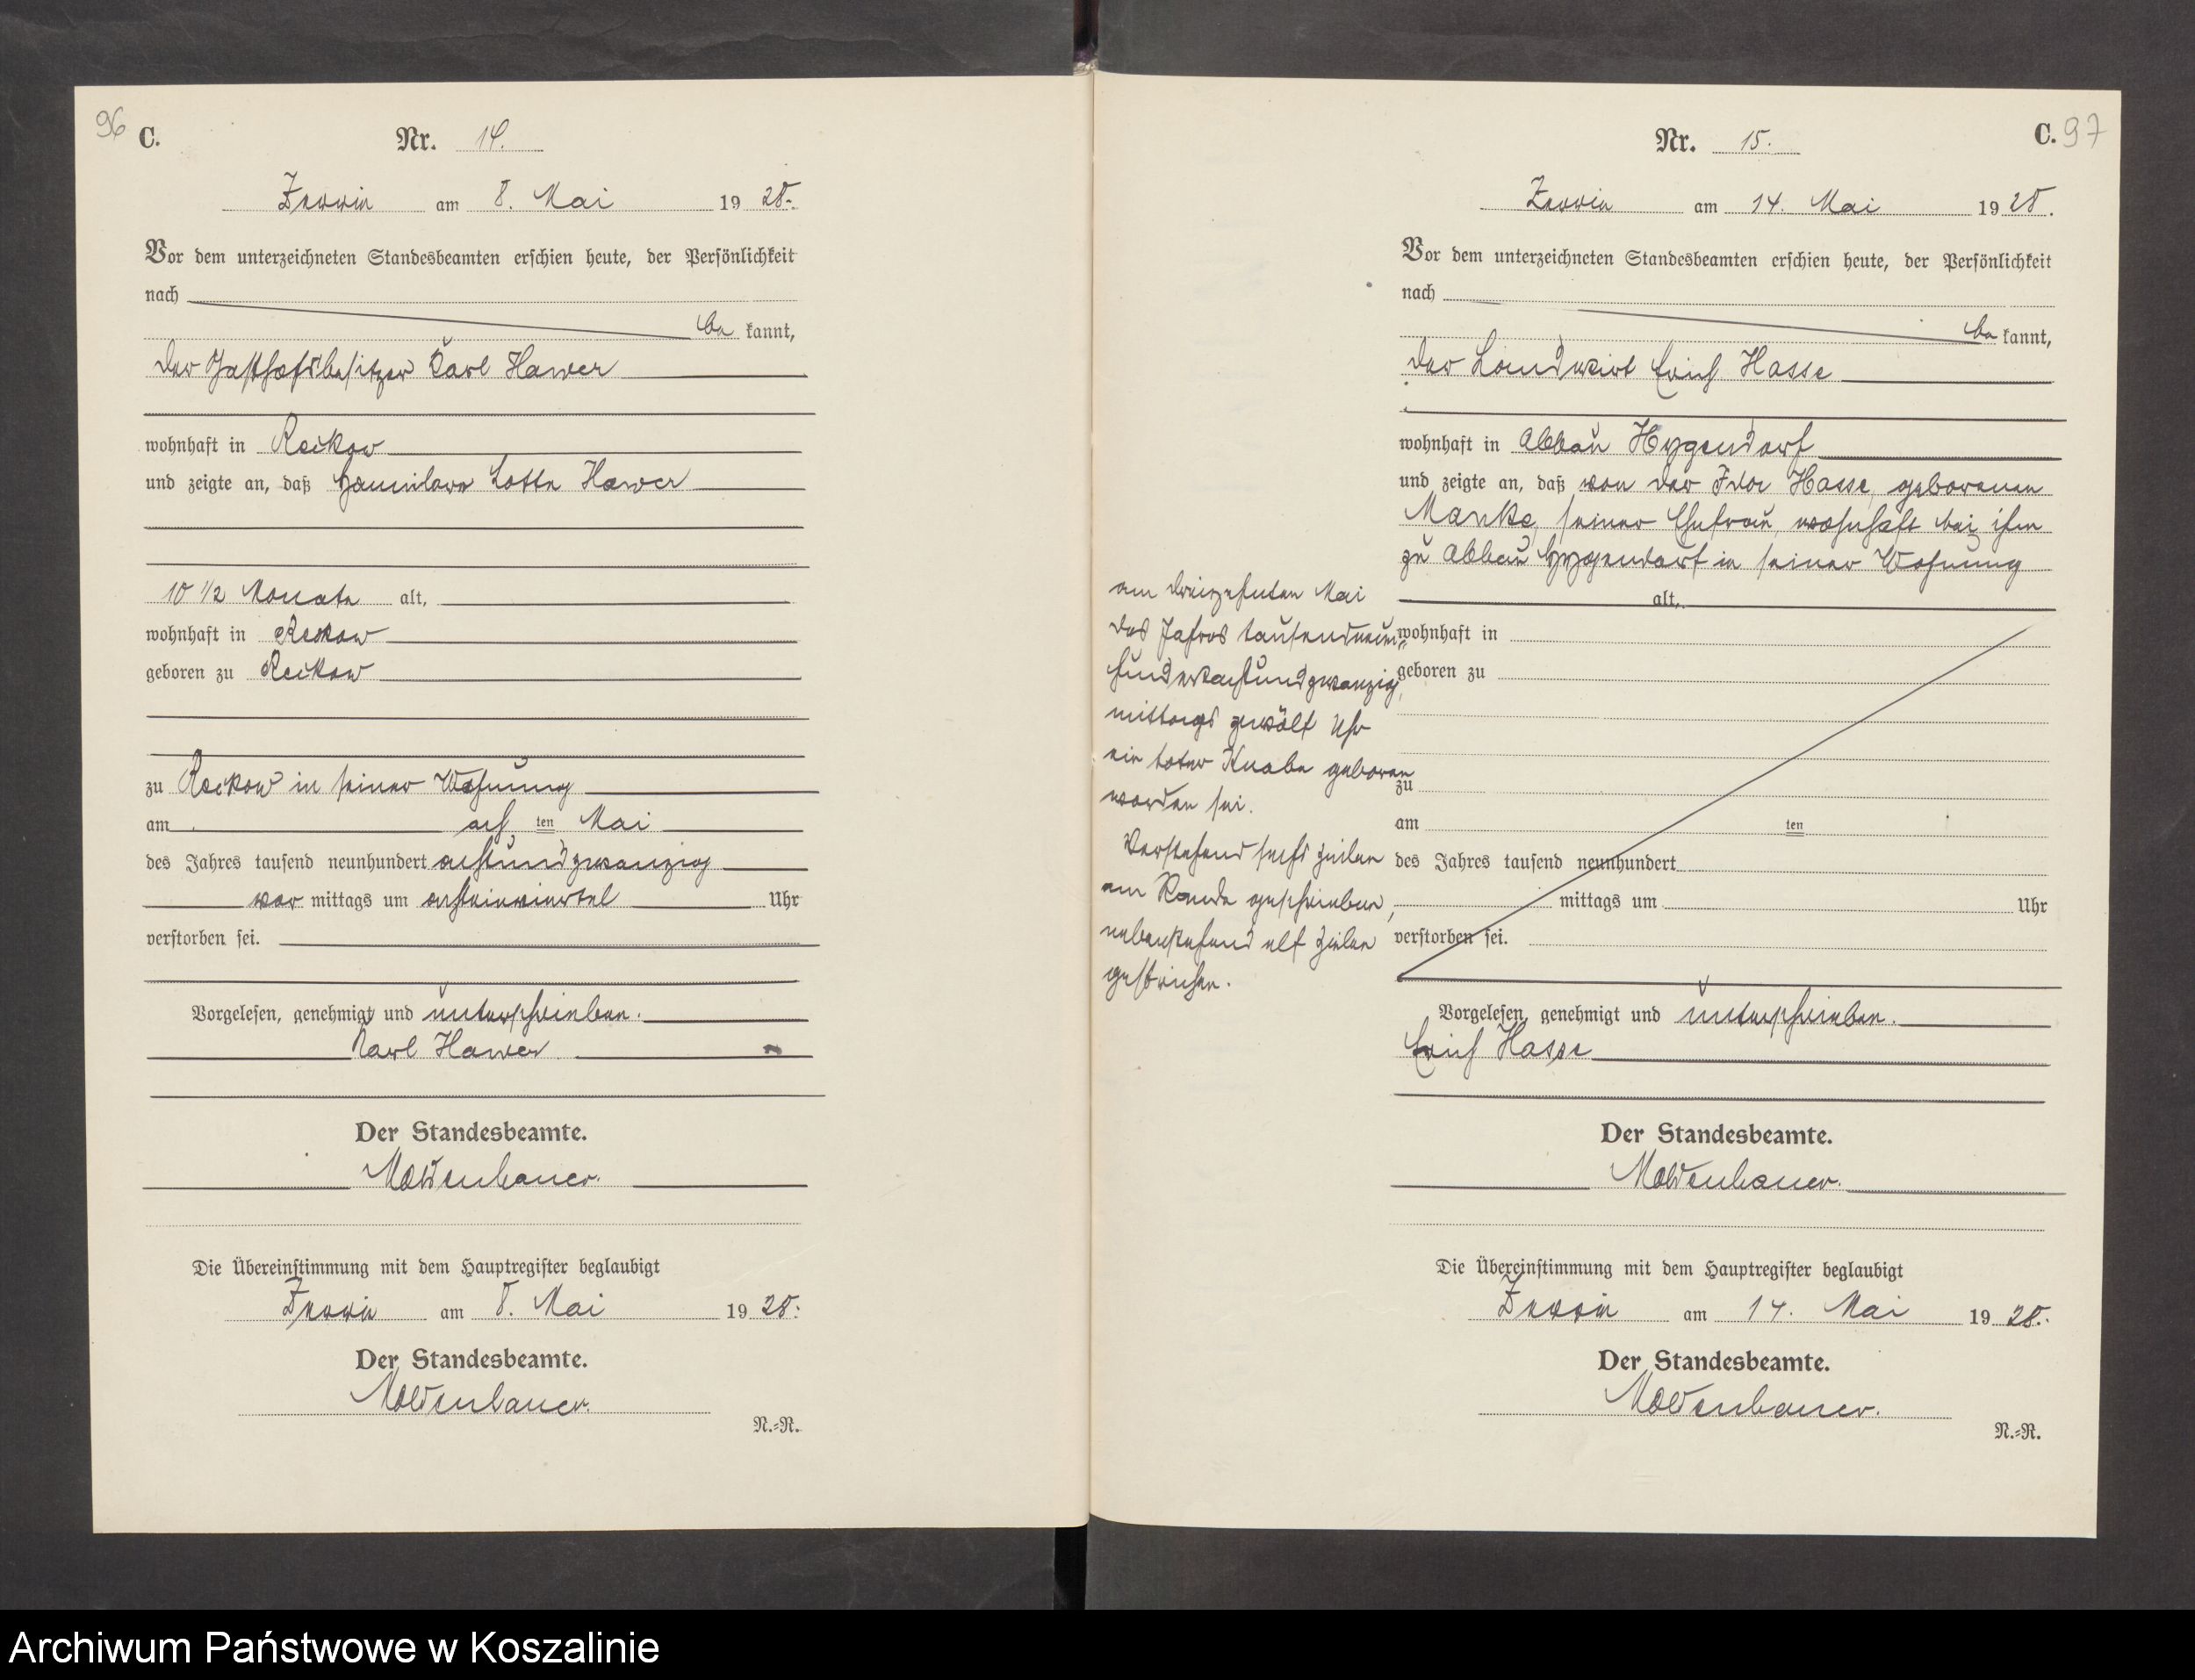 96
C.
Nr. 14.
Zewin am 8. Mai 1928.
Vor dem unterzeichneten Standesbeamten erschien heute, der Persönlichkeit
nach
be kannt,
der Gasthofsbesitzer Karl Hawer
wohnhaft in Reckow
und zeigte an, daß Hannelore Lotte Hawer
10 1/2 Monate alt,
wohnhaft in Reckow
geboren zu Reckow
zu Reckow in seiner Wohnung
am acht ten Mai
des Jahres tausend neunhundert achtundzwanzig
vor mittags um achteinviertel Uhr
verstorben sei.
Vorgelesen, genehmigt und unterschrieben.
Karl Hawer
Der Standesbeamte.
Moldenhauer.
Die Übereinstimmung mit dem Hauptregister beglaubigt
Zewin am 8. Mai 1928.
Der Standesbeamte.
Moldenhauer.
N.=R.
C. 97
Nr. 15.
Zewin am 14. Mai 1928.
Vor dem unterzeichneten Standesbeamten erschien heute, der Persönlichkeit
nach
be kannt,
der Landwirt Erich Hasse
wohnhaft in Abbau Hygendorf
und zeigte an, daß von der Hasse, geborenen
Manke, seiner Ehefrau, wohnhaft bei ihm
zu Abbau Hygendorf in seiner Wohnung
alt,
wohnhaft in
geboren zu
zu
am ten
des Jahres tausend neunhundert
mittags um Uhr
verstorben sei.
am dreizehnten Mai
des Jahres tausendneun=
hundertachtundzwanzig,
mittags zwölf Uhr
ein toter Knabe geboren
worden sei.
Vorstehend sechs Zeilen
am Rande geschrieben,
nebenstehend elf Zeilen
gestrichen.
Vorgelesen, genehmigt und unterschrieben.
Erich Hasse
Der Standesbeamte.
Moldenhauer.
Die Übereinstimmung mit dem Hauptregister beglaubigt
Zewin am 14. Mai 1928.
Der Standesbeamte.
Moldenhauer.
N.=R.
Archiwum Państwowe w Koszalinie